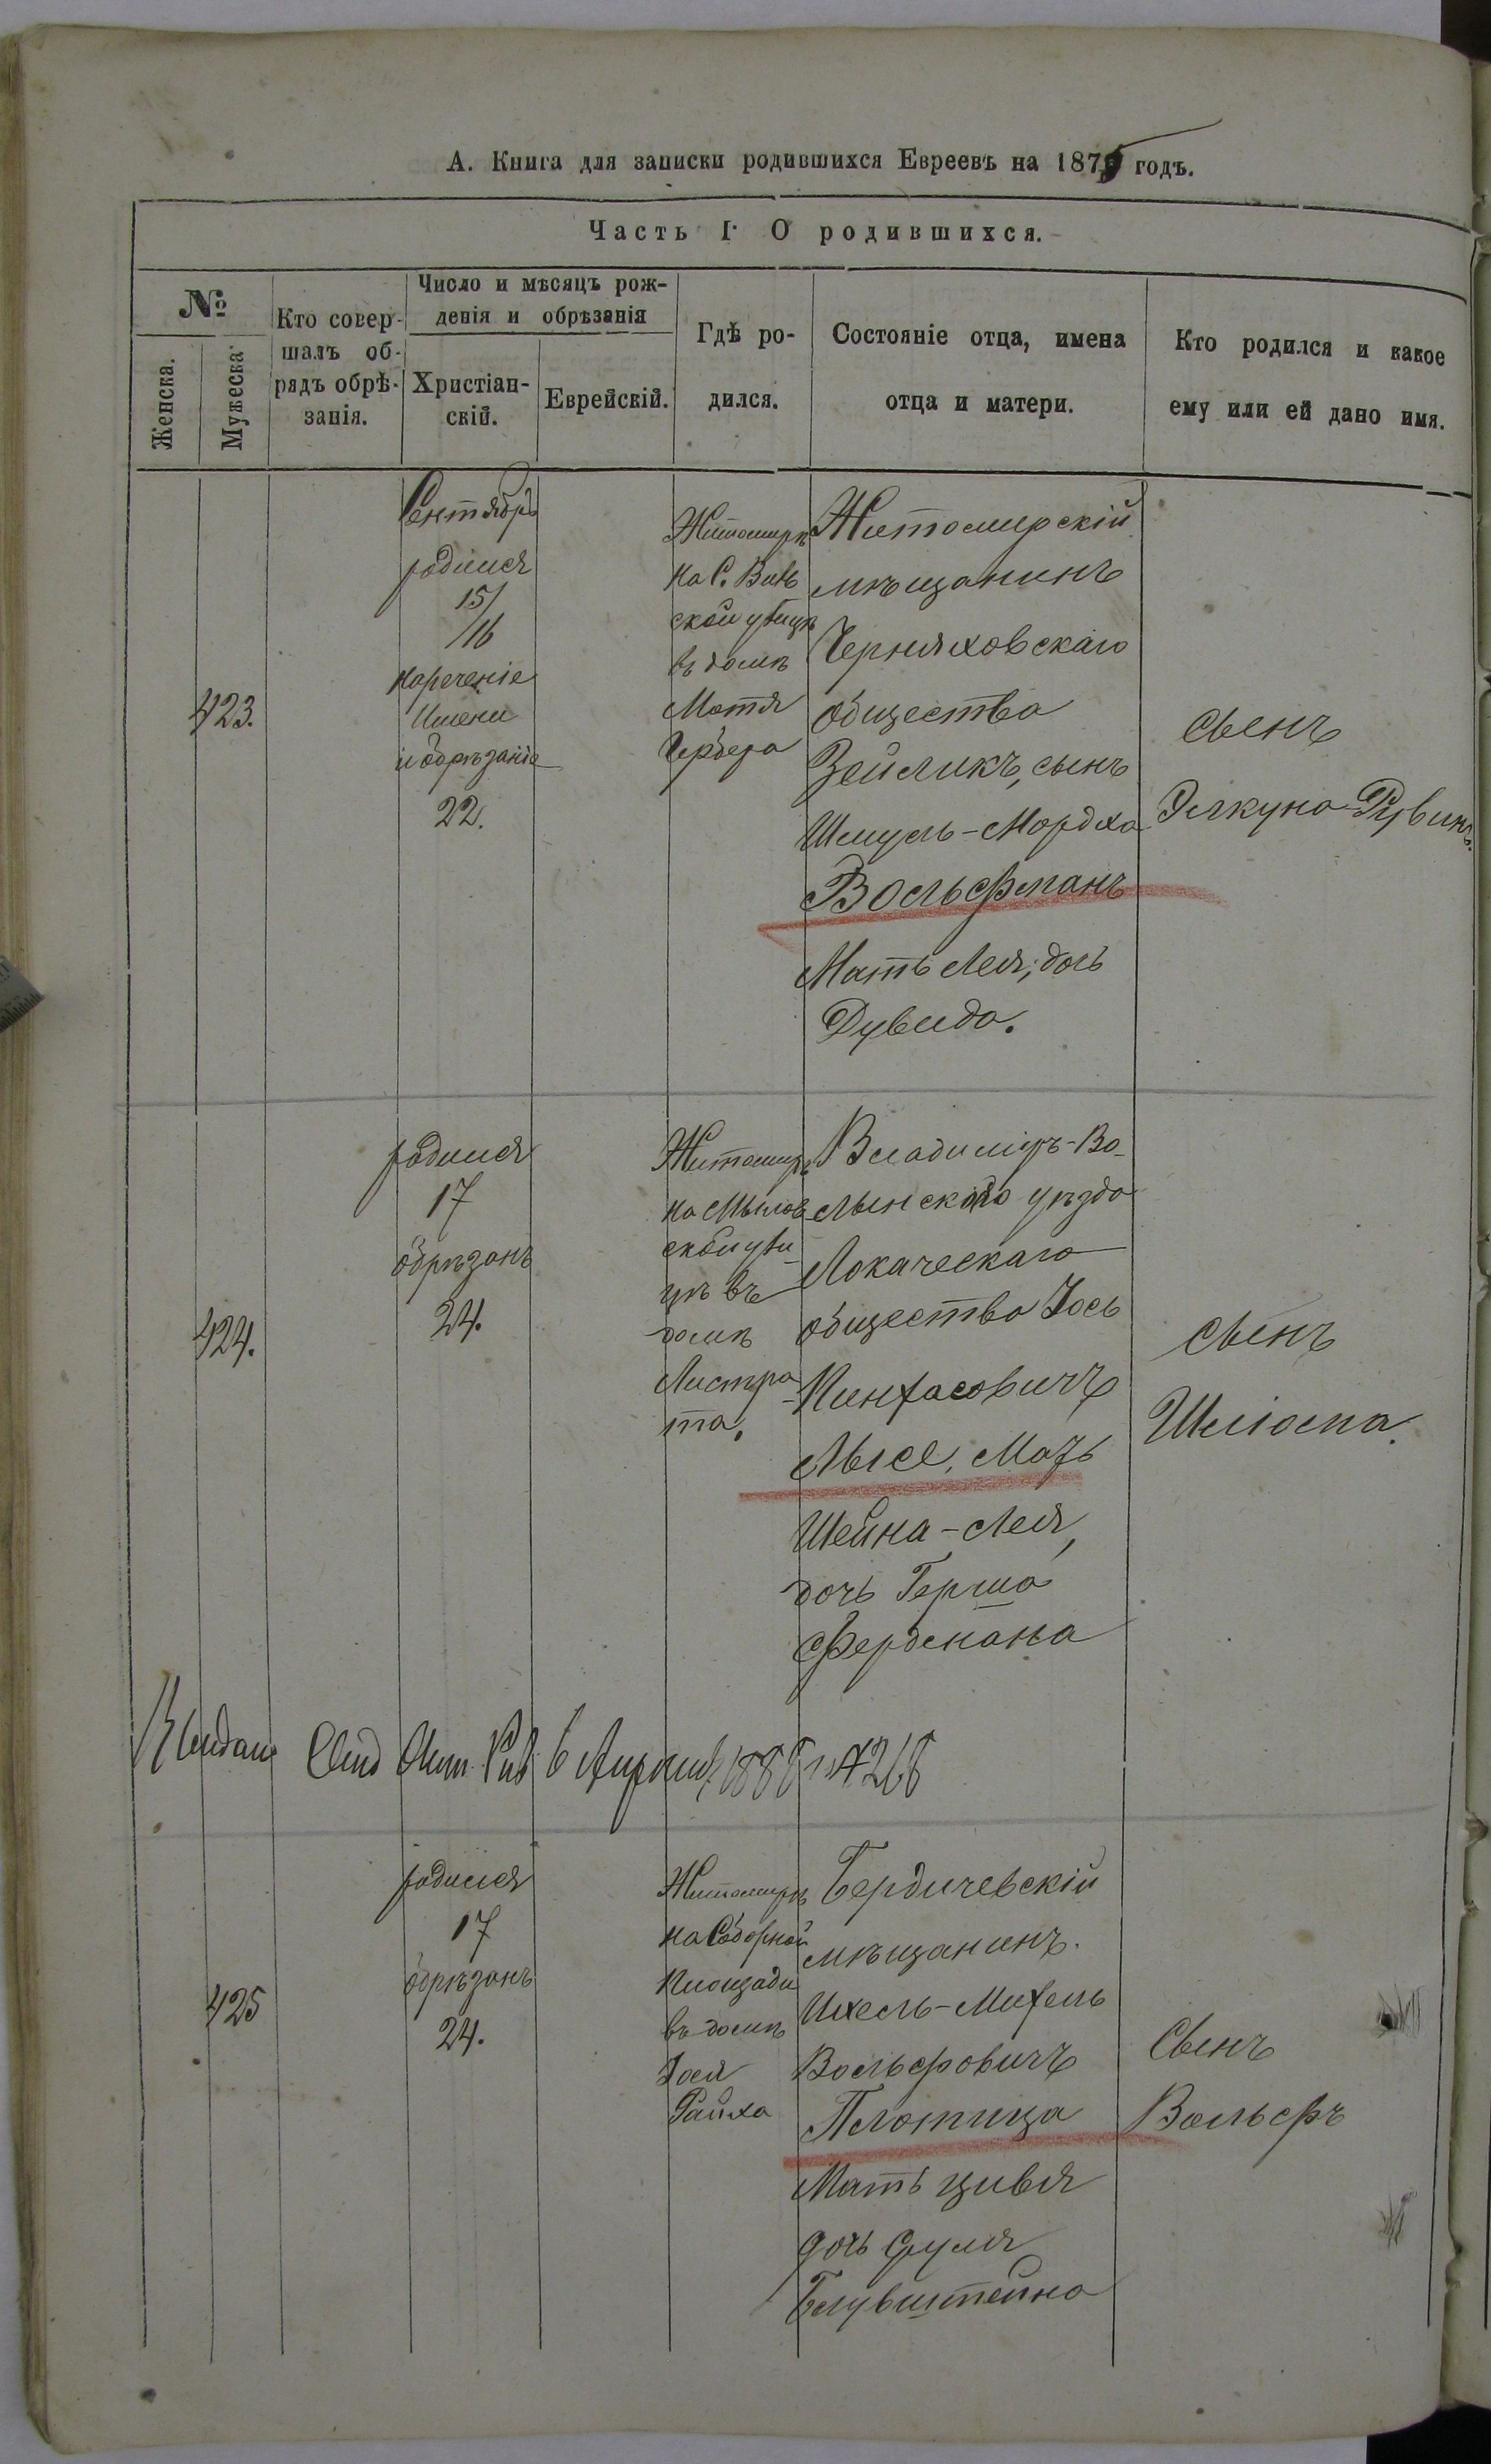 А. Книга для записки родившихся Евреевъ на 1875 годъ.
Часть I. О родившихся.
№
Женска.
Мужеска
Кто совер-
шалъ об-
рядъ обрѣ-
занія.
Число и мѣсяцъ рож-
денія и обрѣзанія
Христіан-
скій.
Еврейскій.
Гдѣ ро-
дился.
Состояніе отца, имена
отца и матери.
Кто родился и какое
ему или ей дано имя.
423.
Сентябрь
родился
15/
/16
нареченіе
Имени
и обрѣзаніе
22.
Житомирѣ
на
въ домѣ
Мотя
Гербера
Житомирскій
мѣщанинъ
Черняховскаго
общества
Зейликъ, сынъ
Шмуль-Мордха
Вольфманъ
Мать Лея, дочь
Дувида.
сынъ
Рувинъ.
424.
родился
17
обрѣзанъ
24.
Житомирѣ
на
ской ули
цѣ въ
домѣ
Листра
та,
Владимиръ-Во-
лынскаго уѣзда
Локаческаго
общества Іось
Пинхасовичъ
Лысе, Мать
Шейна-Лея,
дочь Герша
Фердмана
сынъ
Шліома.
6
425
родился
17
обрѣзанъ
24.
Житомирѣ
на Соборной
Площади
въ домѣ
Іося
Райха
Бердичевскій
мѣщанинъ.
Ихель-Михель
Вольфовичъ
Плотица
Мать Цивья
дочь Сруля
Блувштейна
Сынъ
Вольфъ